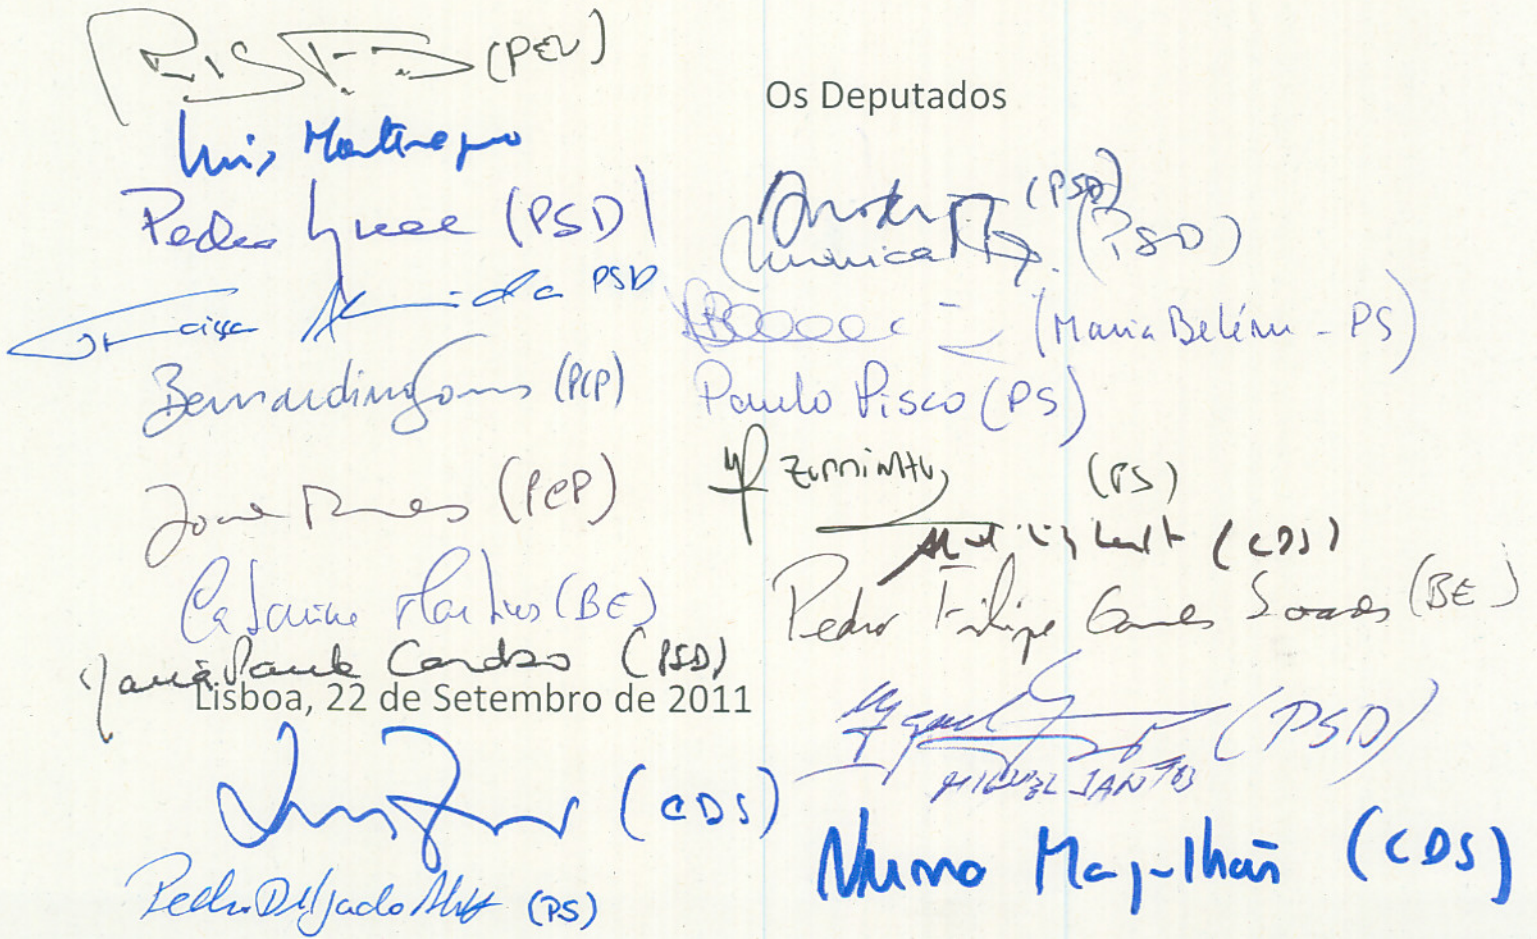 (PEV)
Os Deputados
Luís Montenegro
Pedro (PSD)
(PSD)
Mónica (PSD)
Almeida PSD
(Maria Belém - PS)
Bernardino (PCP)
Paulo Pisco (PS)
(PCP)
Zorrinho (PS)
(CDS)
Catarina Martins (BE)
Pedro Filipe Soares (BE)
Maria Paula Cardoso (PSD)
Lisboa, 22 de Setembro de 2011
Miguel (PSD)
MIGUEL SANTOS
(CDS)
Nuno Magalhães (CDS)
Pedro Delgado Alves (PS)